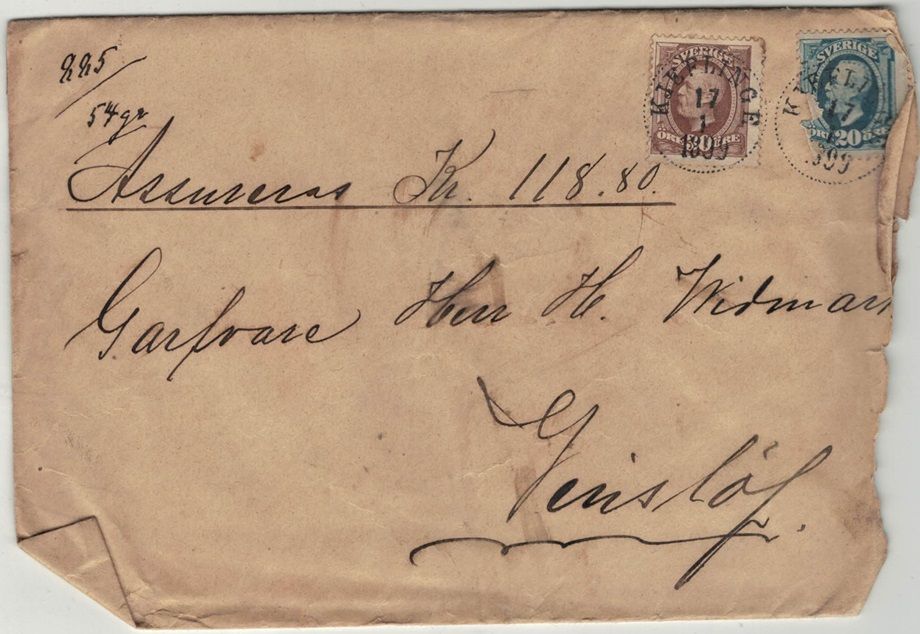 225/
54 gr
Assureras Kr. 118.80.
Garfvare Herr H. Widmark
Vinslöf.
SVERIGE
KJEFLINGE
17
1
1899
ÖRE 30 ÖRE
SVERIGE
KJEFLI
17
1
899
ÖRE 20